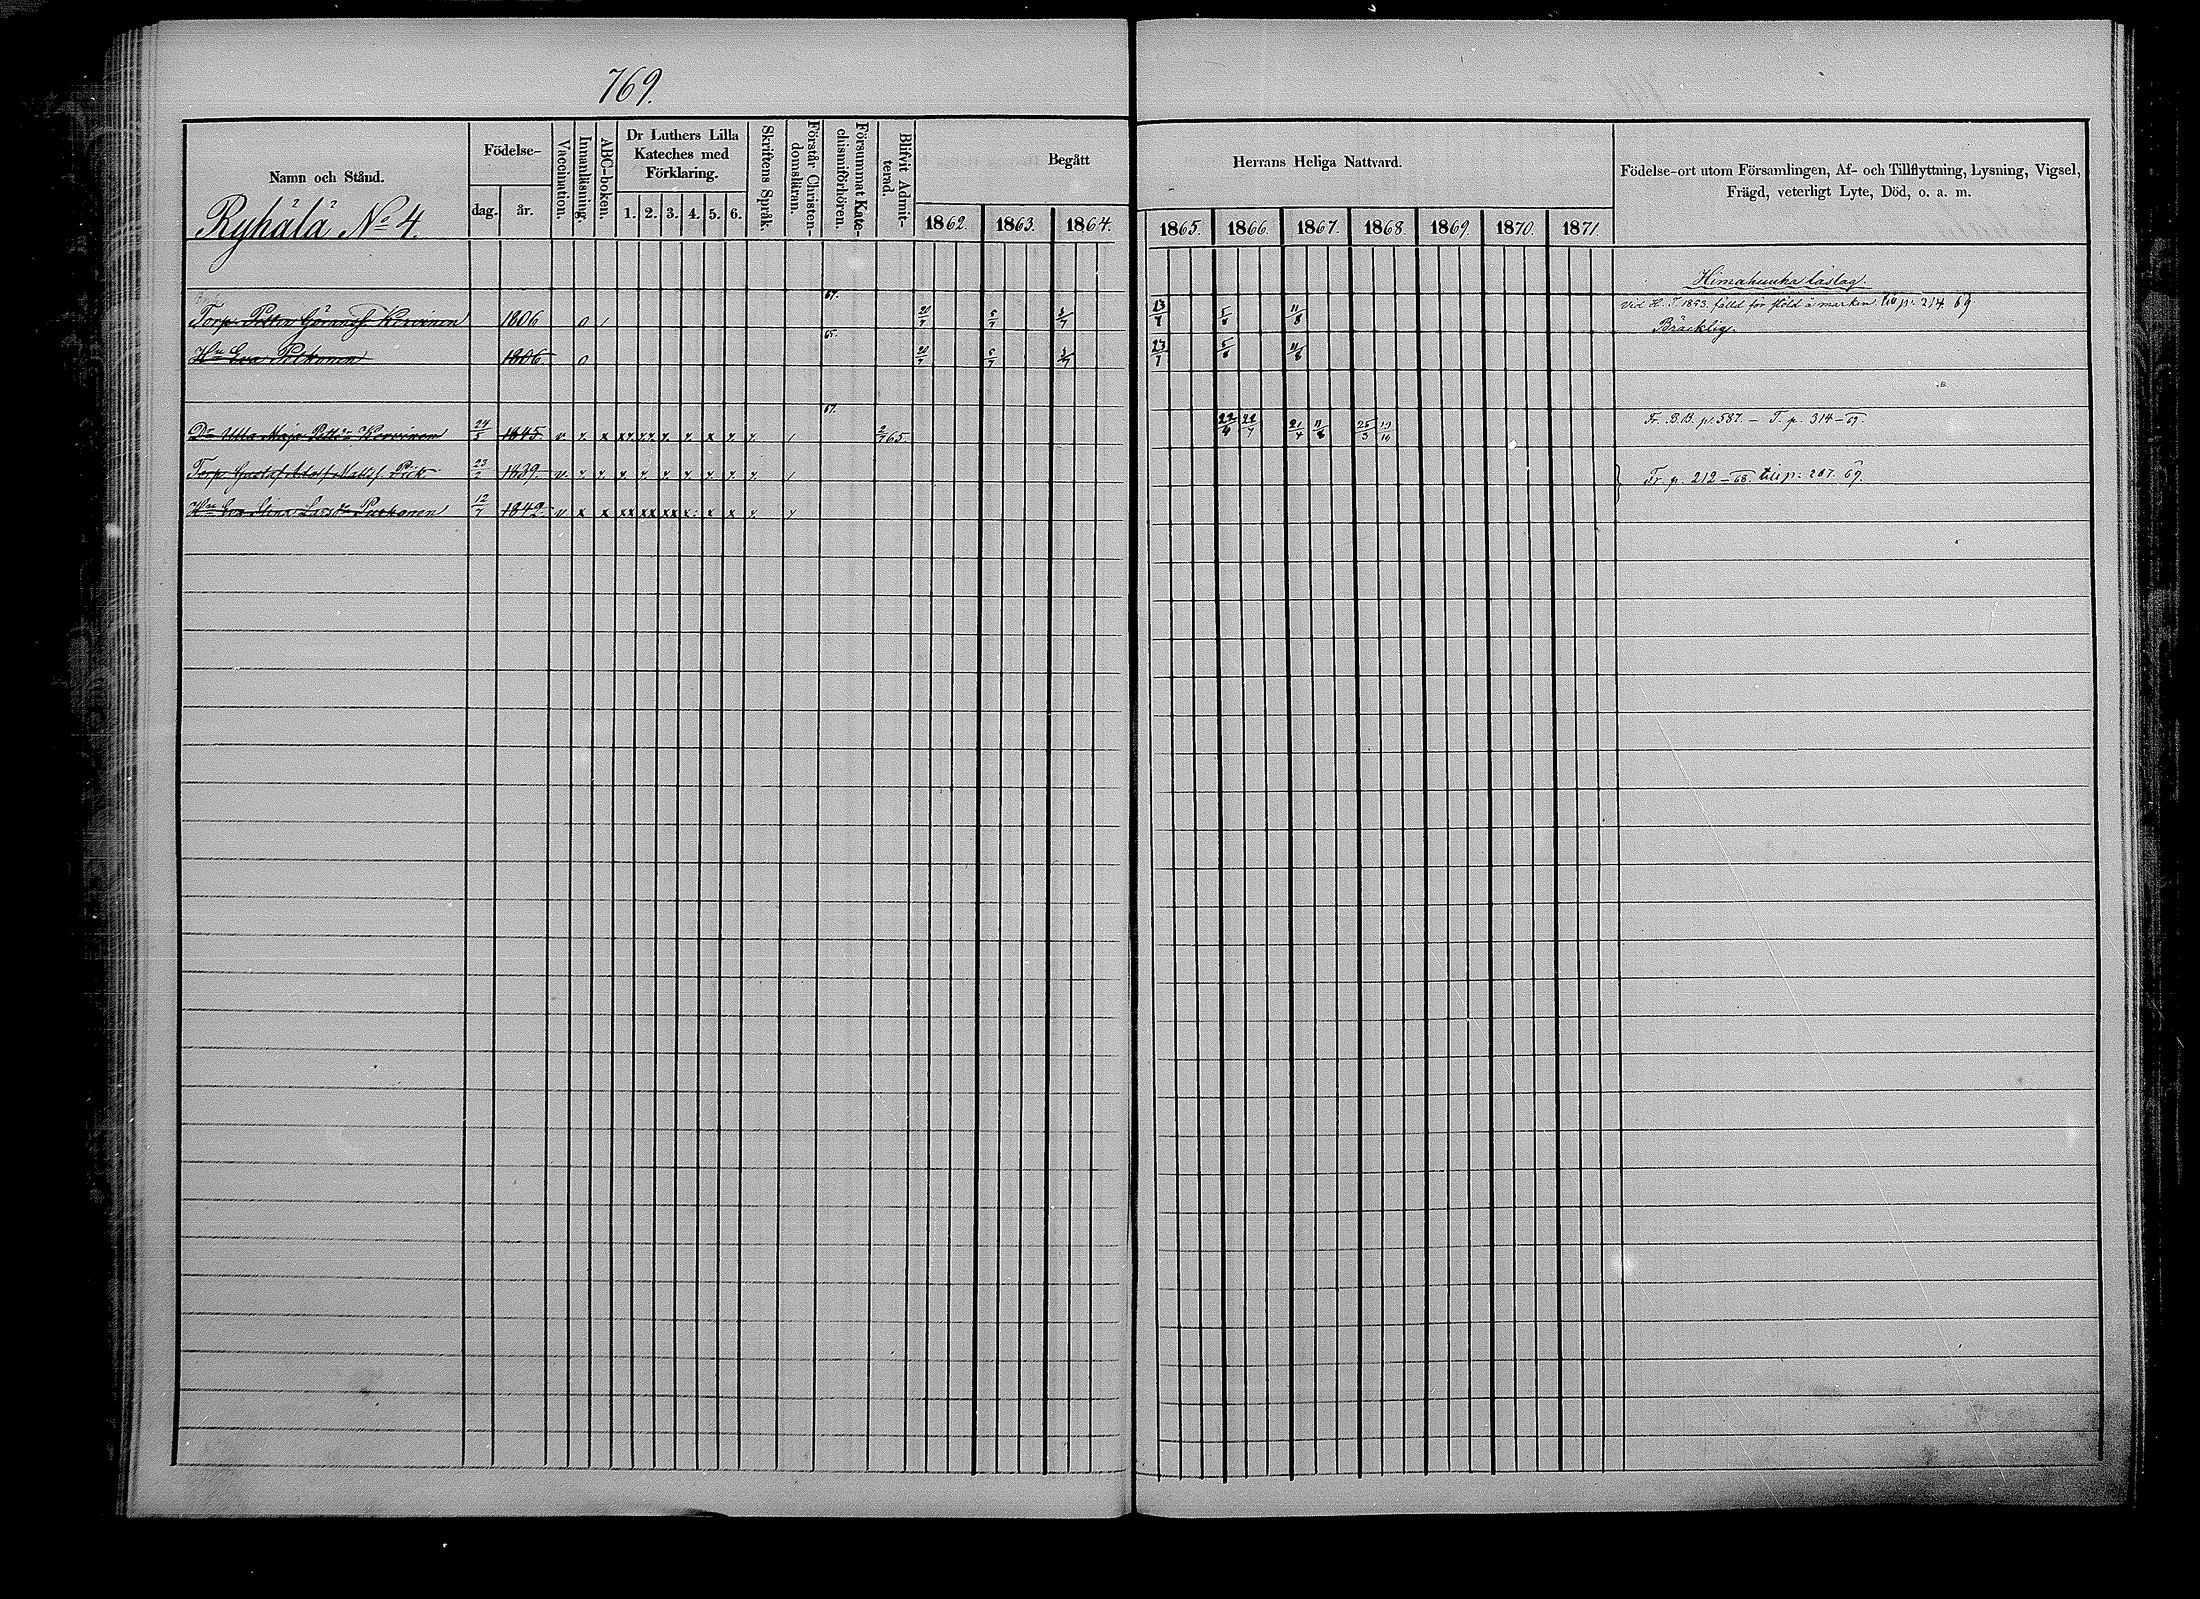 769.
Namn och Stånd.
Födelse-
dag.
år.
Vaccination.
Innanläsning.
ABC-boken.
Dr Luthers Lilla
Kateches med
Förklaring.
1. 2. 3. 4. 5. 6.
Skriftens Språk.
Förstår Christen-
domsläran.
Försummat Kate-
chismiförhören.
Blifvit Admit-
terad.
Begått
Herrans Heliga Nattvard.
1862. 1863. 1864. 1865. 1866. 1867. 1868. 1869. 1870. 1871.
Födelse-ort utom Församlingen, Af- och Tillflyttning, Lysning, Vigsel,
Frägd, veterligt Lyte, Död, o. a. m.
Ryhälä No 4.
Himahuuha låslag.
67.
Torp. Petter Göransf Korvinen 1806 0 / 5/7 3/7 5/8 11/8 Vid H. T. 1853 fälld för stöld å marken till p. 214 69
Bräcklig.
65.
Hu Eva Polkonen 1806 0 5/7 3/7 23/7 5/8 11/8
67.
Dr Ulla Maja Pettdr Korvinen 24/5 1845 v. x x 2/7 65 21/4 11/8 25/3 Fr. B.B. p. 587. – T. p. 314 – 69.
Torp Gustaf Adolf Mattsf. Piik 23/2 1839. v. Fr. p. 212 – 68. till p: 207. 69.
Hu Eva Stina Larsdr Puikonen 12/7 1849 v x x xx xx xx x x x